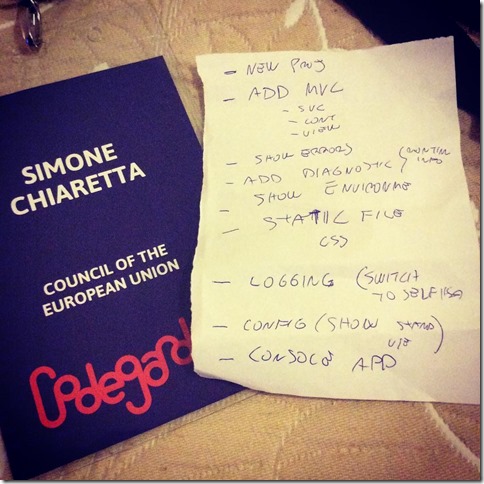 SIMONE
CHIARETTA
COUNCIL OF THE
EUROPEAN UNION
Codegard
- NEW PROJ
- ADD MVC
- SVC
- CONT
- VIEW
- SHOW ERRORS
- ADD DIAGNOSTIC (RUNTIME
INFO
- SHOW ENVIRONME
- STATIC FILE
CSS
- LOGGING (SWITCH
TO SELFHOS
- CONFIG (SHOW
- CONSOLE APP